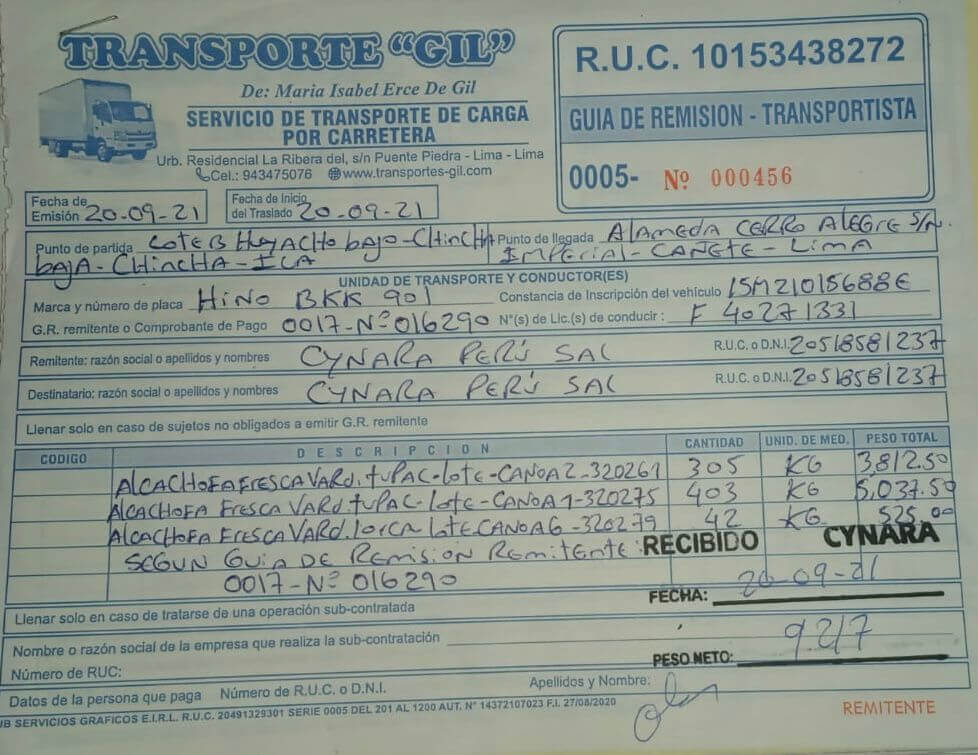 TRANSPORTE "GIL"
De: Maria Isabel Erce De Gil
SERVICIO DE TRANSPORTE DE CARGA
POR CARRETERA
Urb. Residencial La Ribera del, s/n Puente Piedra - Lima - Lima
Cel.: 943475076 www.transportes-gil.com
R.U.C. 10153438272
GUIA DE REMISION - TRANSPORTISTA
0005- Nº 000456
Fecha de Emisión 20-09-21 Fecha de Inicio del Traslado 20-09-21
Punto de partida LOTE B HUYACHO BAJO - CHINCHA
BAJA - CHINCHA - ICA
Punto de llegada ALAMEDA CERRO ALEGRE S/N.
IMPERIAL - CAÑETE - LIMA
UNIDAD DE TRANSPORTE Y CONDUCTOR(ES)
Marca y número de placa HINO BKK 901 Constancia de Inscripción del vehículo 15M21015688E
G.R. remitente o Comprobante de Pago 0017-Nº 016290 N°(s) de Lic.(s) de conducir : F 40271331
Remitente: razón social o apellidos y nombres CYNARA PERÚ SAC R.U.C. o D.N.I. 20518581237
Destinatario: razón social o apellidos y nombres CYNARA PERÚ SAC R.U.C. o D.N.I. 20518581237
Llenar solo en caso de sujetos no obligados a emitir G.R. remitente
CODIGO DESCRIPCION CANTIDAD UNID. DE MED. PESO TOTAL
ALCACHOFA FRESCA VARD. TUPAC - LOTE - CANOA 2 - 320261 305 KG 3,812.50
ALCACHOFA FRESCA VARD. TUPAC - LOTE - CANOA 1 - 320275 403 KG 5,037.50
ALCACHOFA FRESCA VARD. LORCA LOTE CANOA 6 - 320279 42 KG 525.00
SEGUN GUIA DE REMISION REMITENTE:
0017-Nº 016290
RECIBIDO CYNARA
FECHA: 20-09-21
PESO NETO: 9217
Llenar solo en caso de tratarse de una operación sub-contratada
Nombre o razón social de la empresa que realiza la sub-contratación
Número de RUC:
Datos de la persona que paga Número de R.U.C. o D.N.I. Apellidos y Nombre:
SERVICIOS GRAFICOS E.I.R.L. R.U.C. 20491329301 SERIE 0005 DEL 201 AL 1200 AUT. N° 14372107023 F.I. 27/08/2020
REMITENTE